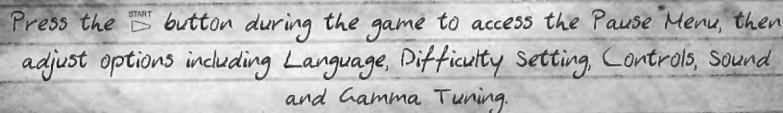 Press the START button during the game to access the Pause Menu, then
adjust options including Language, Difficulty Setting, Controls, Sound
and Gamma Tuning.